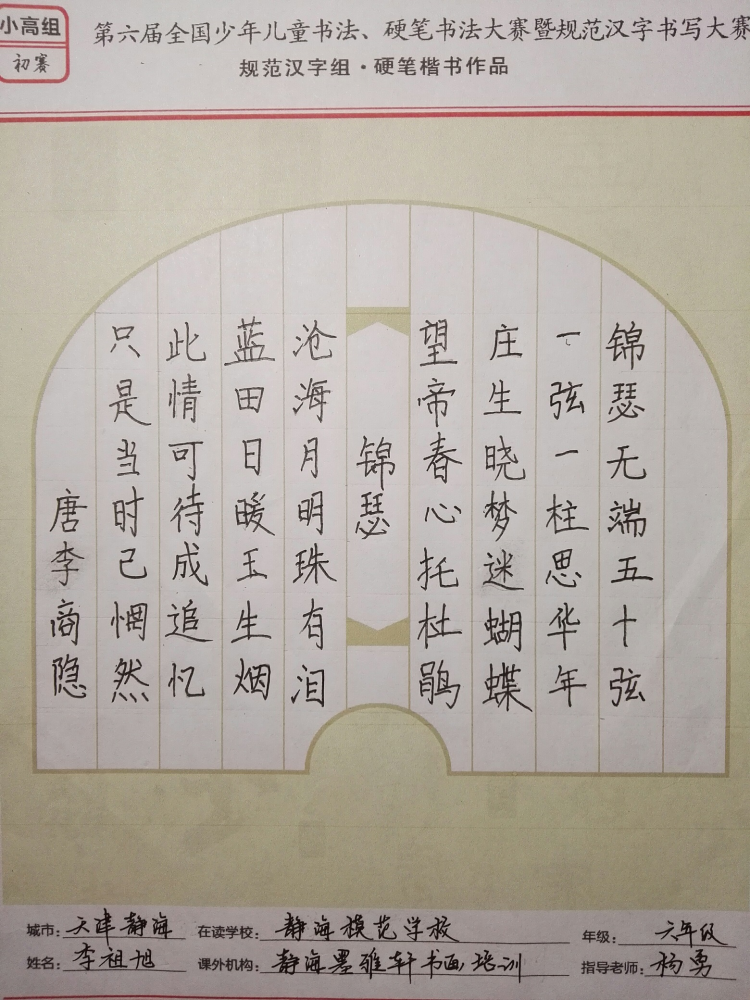 小高组
初赛
第六届全国少年儿童书法、硬笔书法大赛暨规范汉字书写大赛
规范汉字组·硬笔楷书作品
锦瑟无端五十弦
一弦一柱思华年
庄生晓梦迷蝴蝶
望帝春心托杜鹃
锦瑟
沧海月明珠有泪
蓝田日暖玉生烟
此情可待成追忆
只是当时己惘然
唐李商隐
城市：天津静海 在读学校：静海模范学校 年级：六年级
姓名：李祖旭 课外机构：静海墨雅轩书画培训 指导老师：杨勇